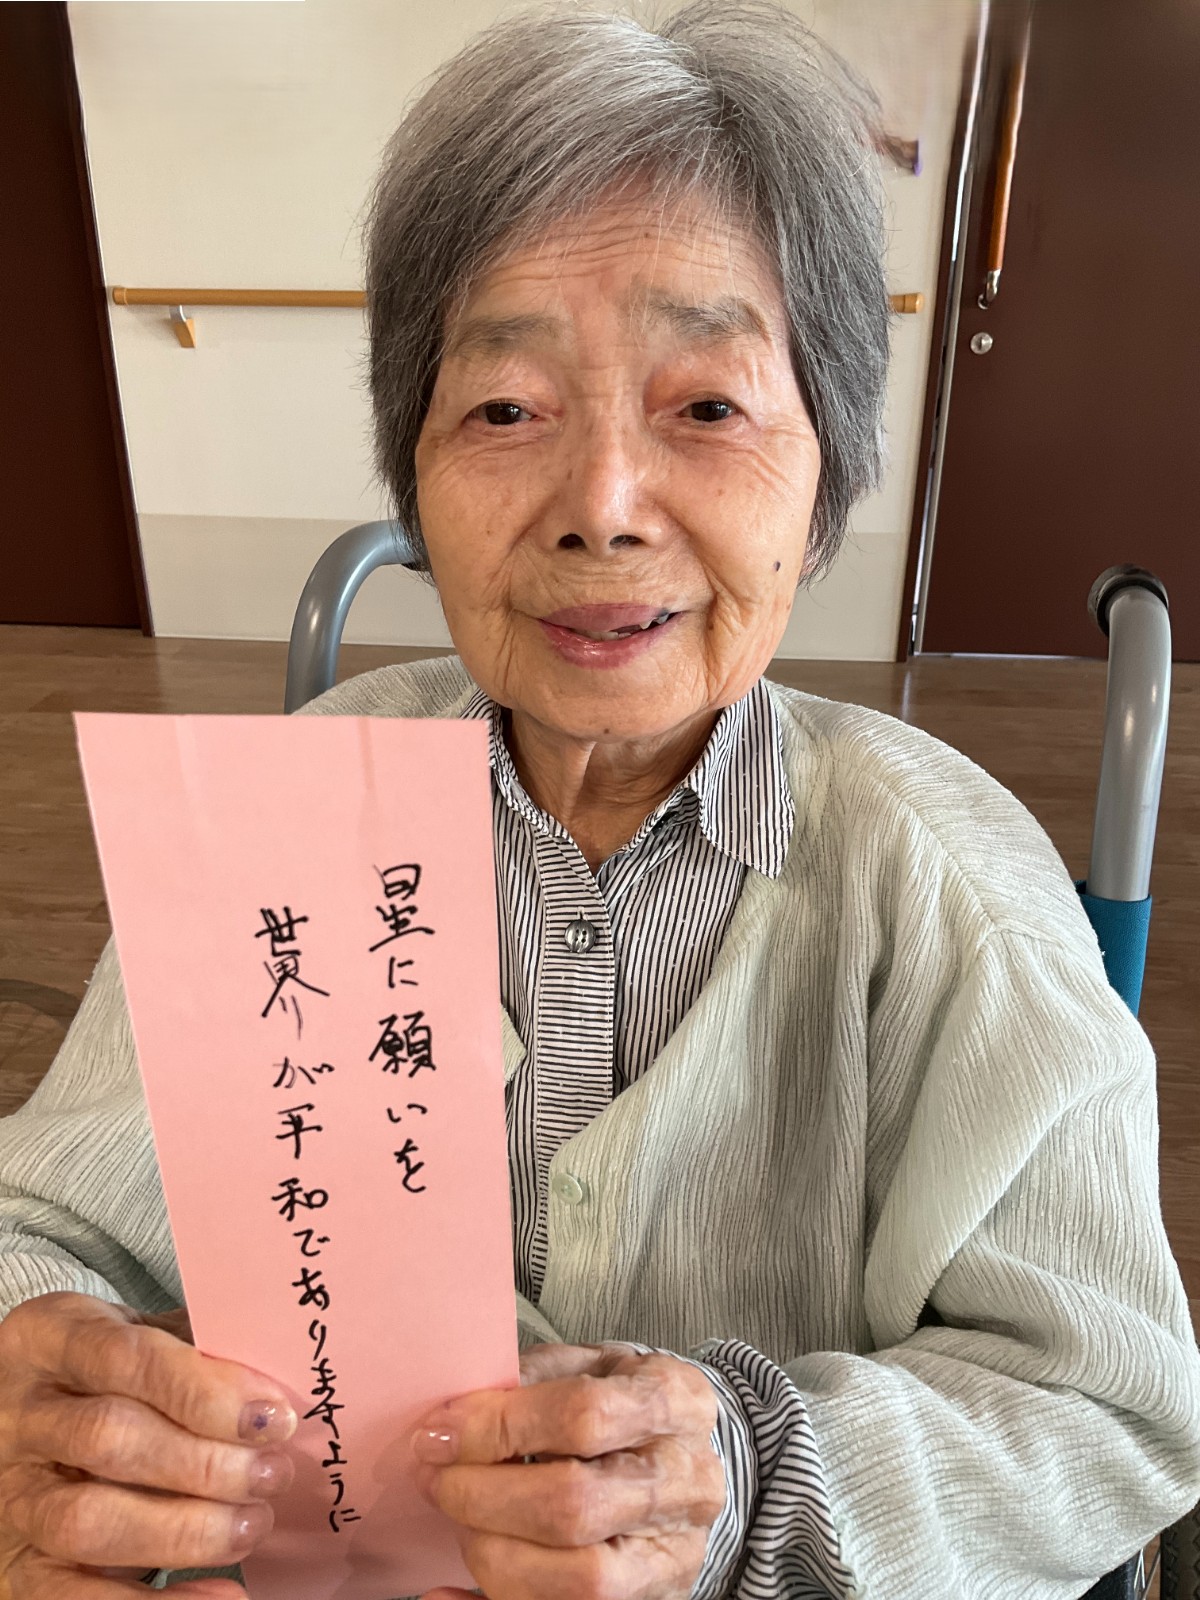 星に願いを
世界が平和でありますように